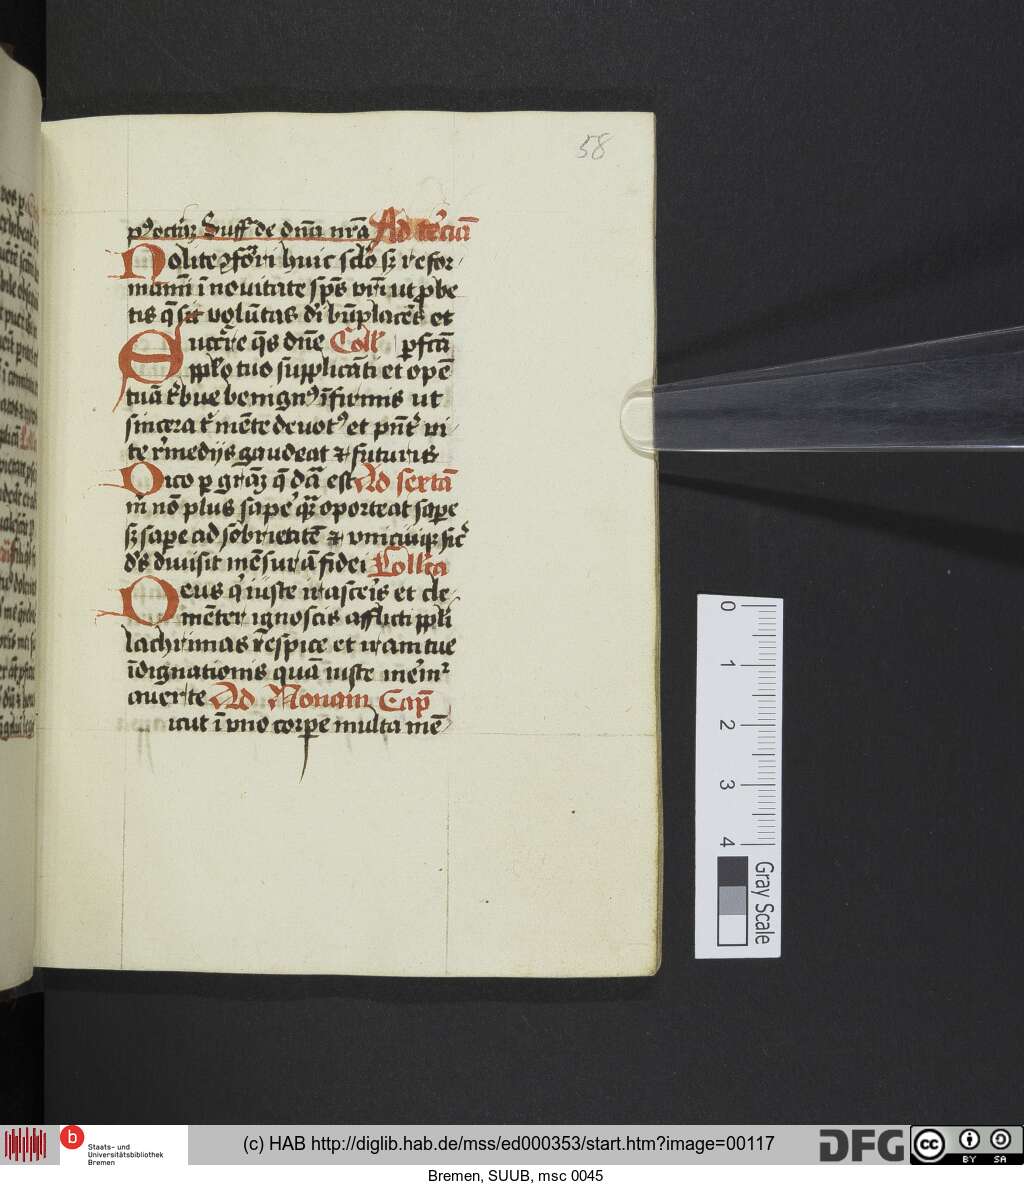 58
Suff de dnā nrā Ad t'ciā
Nolite ꝯfor̄i huic sclo sꝫ refor
mamī ī nouitate sps vr̄i ut ꝓbe
tis q̄ sit volūtas di bn̄placēs et
uꝯr̄e q̄s dn̄e Coll pfctā
pplo tuo supplicāti et opē
tuā t'bue benignꝰ īfirmis ut
sincera t' mēte deuotꝰ et pn̄t' vi
te r'medijs gaudeat ⁊ futuris
Dico p grāꝫ q̄ dā est Ad sextā
m̄ nō plus sape' qꝫ oporteat sape
sꝫ sape ad sobrietatē ⁊ vnicuiqꝫ sic'
ds diuisit mēsurā fidei Coll'ca
Deus q' iuste irasceris et cle
mēter ignoscis afflicti ppli
lachrimas respice et iram tue
īdignationis quā iuste mem'
auerte Ad Nonam Cap
icut ī vno corpe multa mē
0
1
2
3
4
Gray Scale
b
Staats- und
Universitätsbibliothek
Bremen
(c) HAB http://diglib.hab.de/mss/ed000353/start.htm?image=00117
DFG
cc
BY SA
Bremen, SUUB, msc 0045